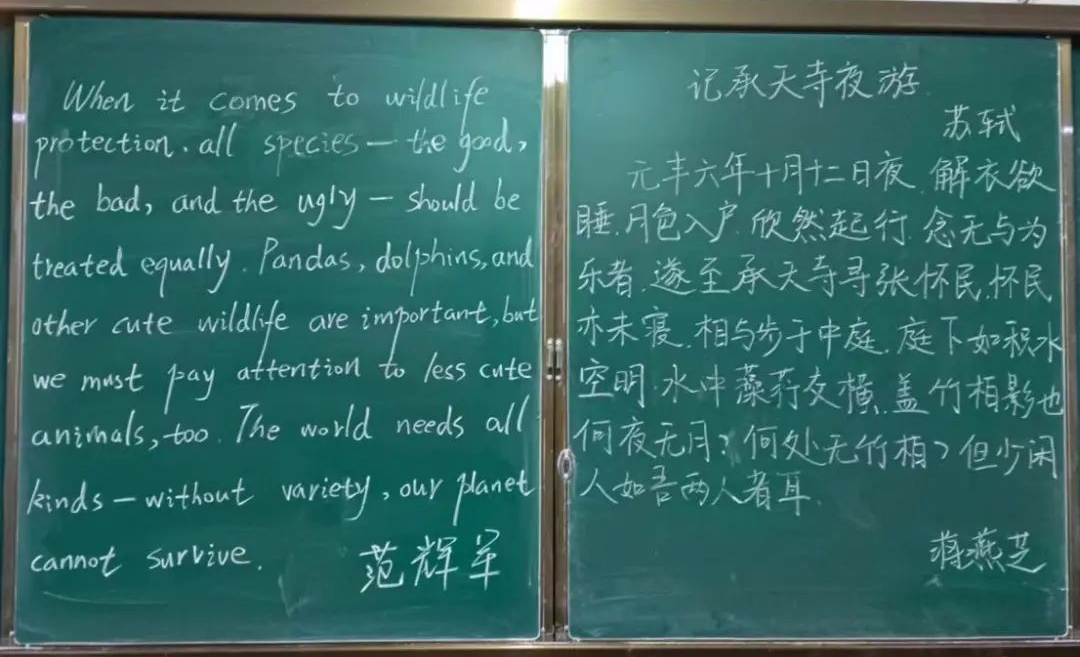 When it comes to wildlife
protection, all species — the good,
the bad, and the ugly — should be
treated equally. Pandas, dolphins, and
other cute wildlife are important, but
we must pay attention to less cute
animals, too. The world needs all
kinds — without variety, our planet
cannot survive.
范辉军
记承天寺夜游
苏轼
元丰六年十月十二日夜,解衣欲
睡,月色入户,欣然起行,念无与为
乐者,遂至承天寺寻张怀民,怀民
亦未寝,相与步于中庭,庭下如积水
空明,水中藻荇交横,盖竹柏影也
何夜无月?何处无竹柏?但少闲
人如吾两人者耳.
蒋燕芝